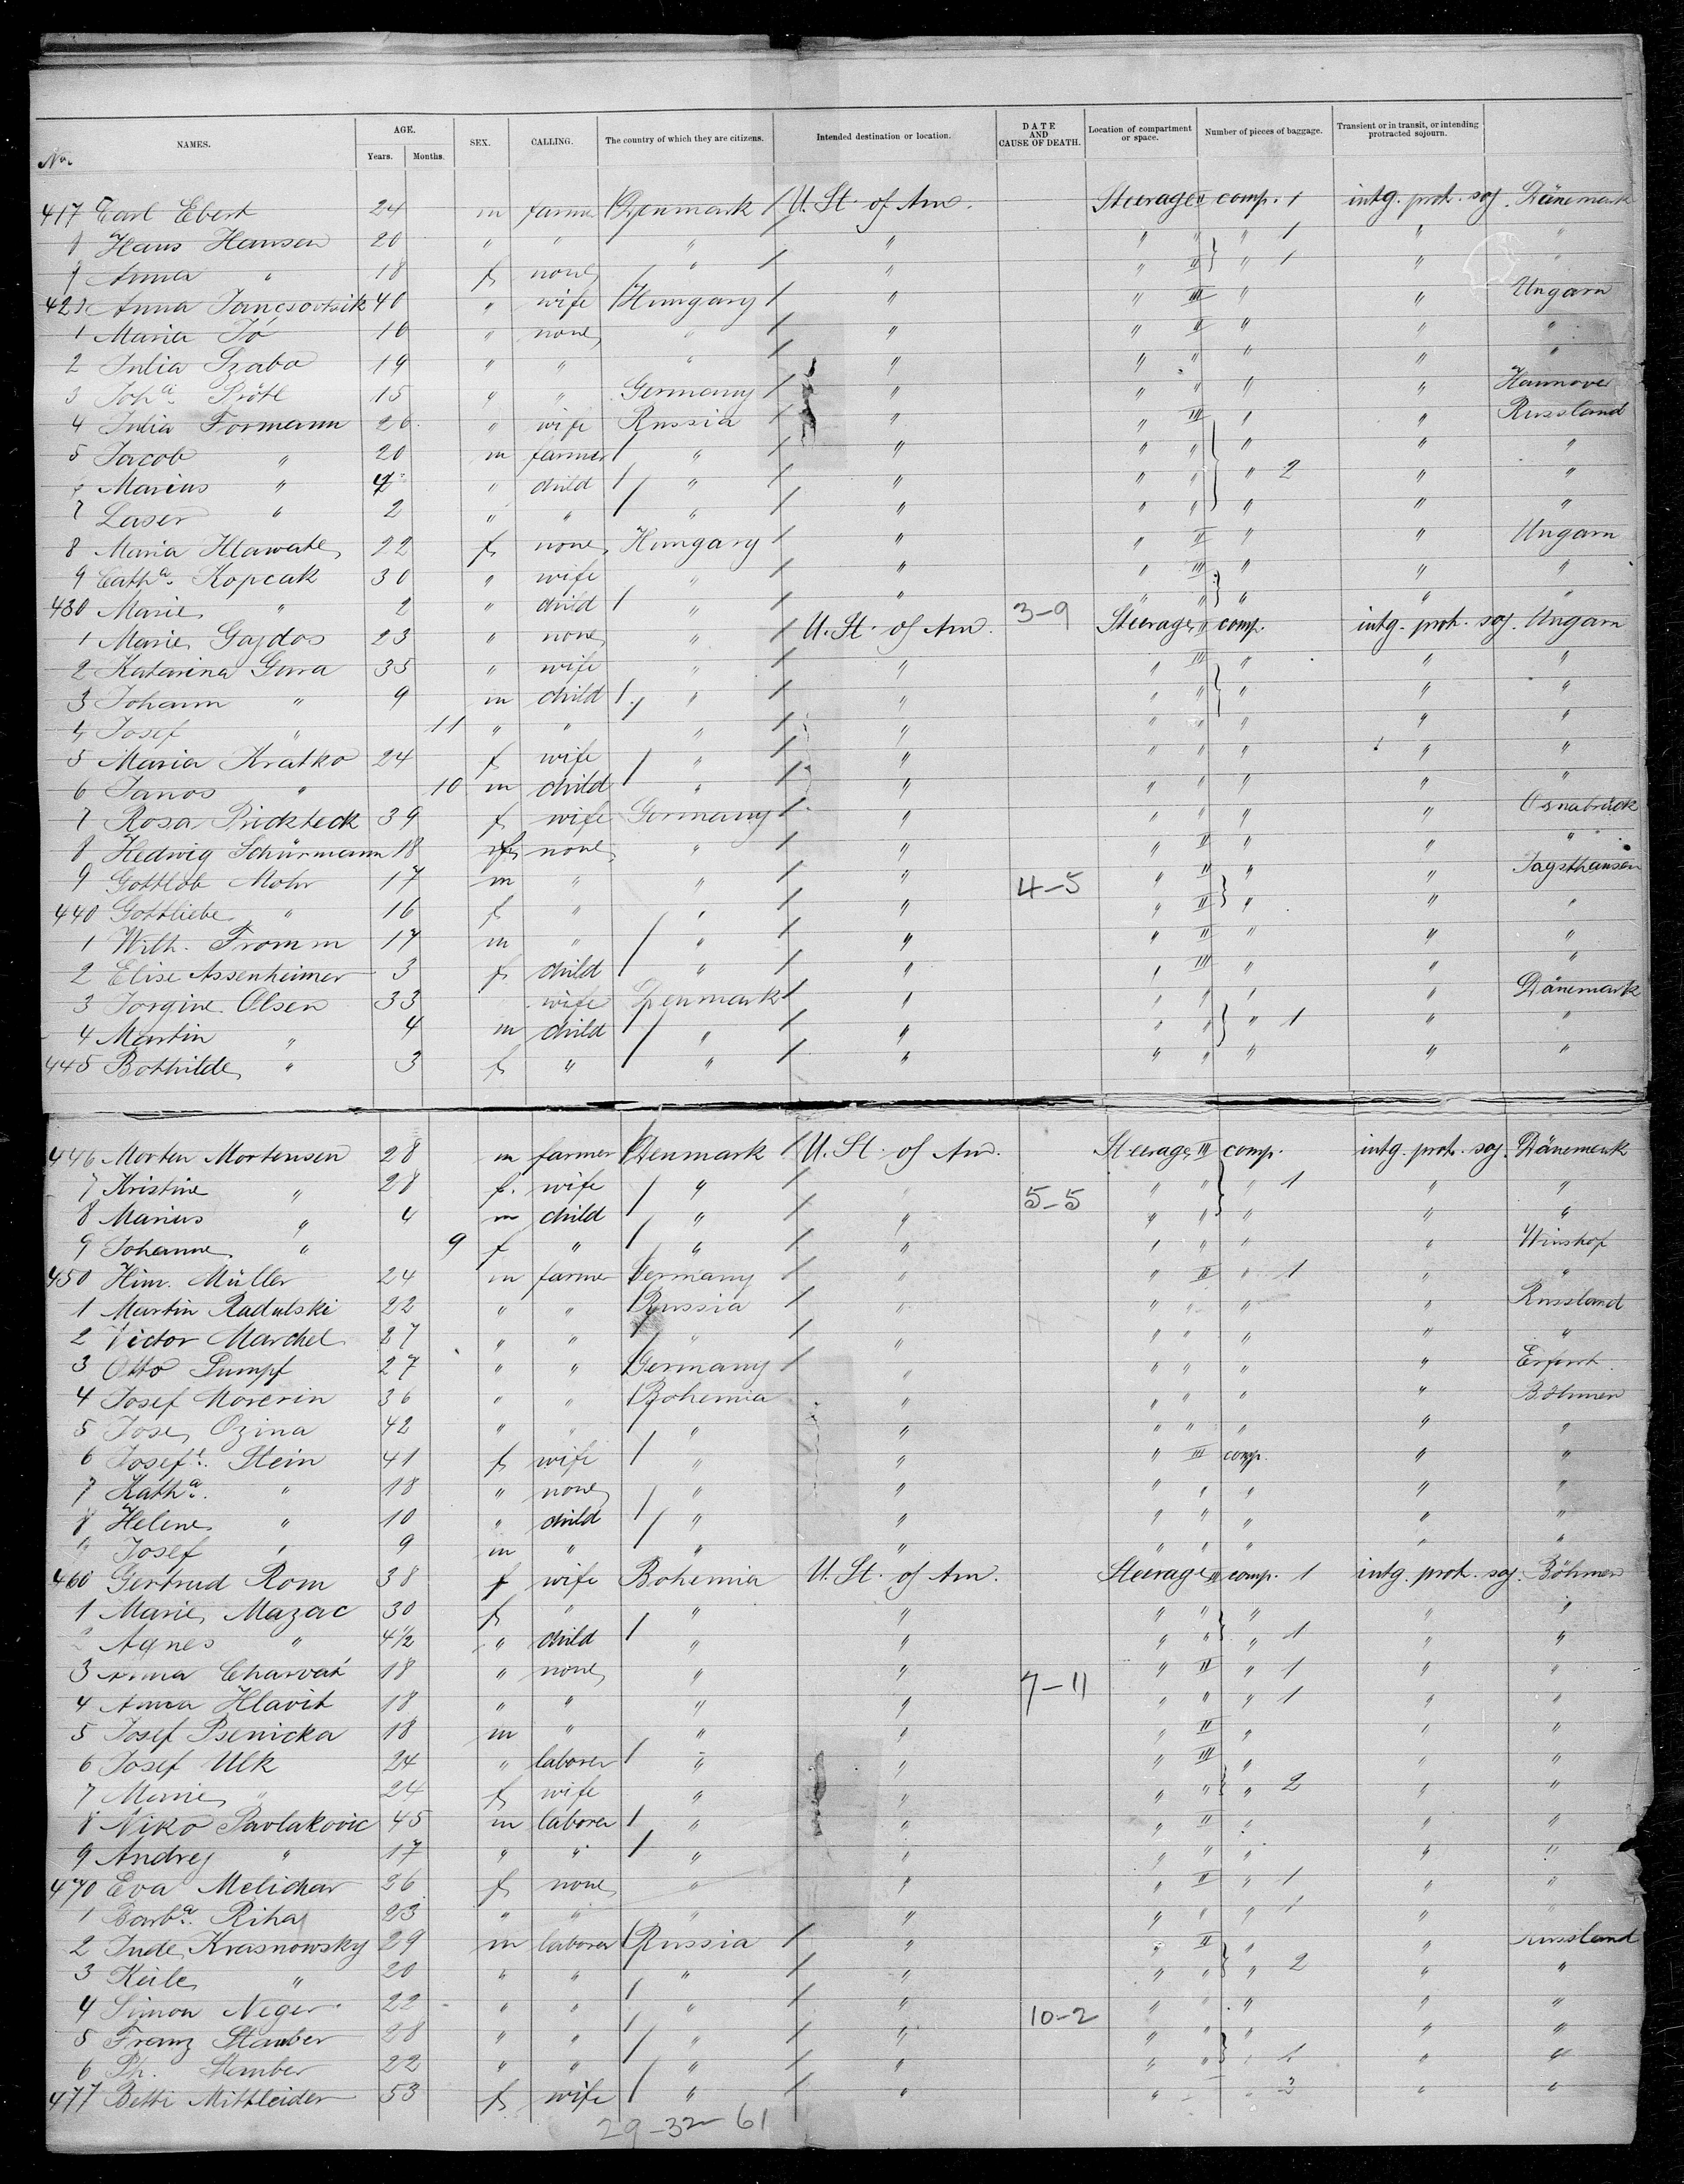 No. NAMES. AGE. Years. Months. SEX. CALLING. The country of which they are citizens. Intended destination or location. DATE AND CAUSE OF DEATH. Location of compartment or space. Number of pieces of baggage. Transient or in transit, or intending protracted sojourn.
417 Carl Ebert 24 m farmer Denmark / U. St. of Am. Steerage II comp. 1 intg. prot. soj. Dänemark
8 Hans Hansen 20 " " " " " " " 1 " "
9 Anna " 18 f none " / " " II " 1 " "
420 Anna 40 " wife Hungary / " " III " " Ungarn
1 Maria Jó 16 " none " / " " II " " "
2 Julia Szabo 19 " " " / " " " " " "
3 Joh.a 15 " " Germany / " " " " " Hannover
4 Julia Formann 26 " wife Russia / " " III " " Russland
5 Jacob " 20 m farmer / " " " " " "
6 Marius " " child / " / " " " " 2 " "
7 Laser " 2 " " / " / " " " " " "
8 Maria Hlawate 22 f none Hungary / " " II " " Ungarn
9 Cath.a Kopcak 30 " wife " / " " III " " "
430 Marie " 2 " child / " / " " " " " "
1 Marie Gajdos 23 " none " / U. St. of Am. 3-9 Steerage II comp. intg. prot. soj. Ungarn
2 Katarina Gera 35 " wife " / " " III " " "
3 Johann " 9 m child / " / " " " " " "
4 Josef " 11 " " " / " " " " " "
5 Maria Kratko 24 f wife / " / " " " " " "
6 Janos " 10 m child " / " " " " " "
7 Rosa Prickteck 39 f wife Germany / " " " " " Osnabrück
8 Hedwig Schürmann 18 f none " / " " II " " "
9 Gottlob Mohr 17 m " " / " 4-5 " II " " Jagsthausen
440 Gottliebe " 16 f " " / " " II " " "
1 Wilh. Fromm 17 m " / " / " " II " " "
2 Elise Assenheimer 3 f child / " / " " III " " "
3 Jorgine Olsen 33 wife Denmark / " " " " " Dänemark
4 Martin " 4 m child / " / " " " " 1 " "
445 Bothilde " 3 f " / " / " " " " " "
446 Morten Mortensen 28 m farmer Denmark / U. St. of Am. Steerage III comp. intg. prot. soj. Dänemark
7 Kristine " 28 f. wife / " / " 5-5 " " " 1 " "
8 Marius " 4 m child " / " " " " " "
9 Johanne " 9 f " / " / " " " " " Winshof
450 Hinr. Müller 24 m farmer Germany / " " II " 1 " "
1 Martin Radulski 22 " " Russia / " " " " " Russland
2 Victor Marchel 27 " " / " / " " " " " "
3 Otto Lumpf 27 " " Germany / " " " " " Erfurt
4 Josef Moverin 36 " " Bohemia " " " " " Böhmen
5 Jose Ozina 42 " " / " " " " " " "
6 Josef.a Stein 41 f wife / " " " III comp. " "
7 Kath.a " 18 " none " " " " " " "
8 Helene " 10 " child / " " " " " " "
9 Josef " 9 m " " " " " " " "
460 Gertrud Rom 38 f wife Bohemia U. St. of Am. Steerage III comp. 1 intg. prot. soj. Böhmen
1 Marie Mazac 30 f " " " " " " " "
2 Agnes " 4½ " child / " " " " " 1 " "
3 Anna Charvat 18 " none " " 7-11 " II " 1 " "
4 Anna Hlavit 18 " " " " " " " 1 " "
5 Josef Psenicka 18 m " " " " II " " "
6 Josef Ulk 24 " laborer / " " " III " " "
7 Marie " 24 f wife " " " " " 2 " "
8 Niko Pavlakovic 45 m laborer / " " " II " " "
9 Andrej " 17 " " / " " " " " " "
470 Eva Melichar 26 f none " " " II " 1 " "
1 Barb.a Riha 23 " " " " " " " 1 " "
2 Jude Krasnowsky 29 m laborer Russia / " " II " " Russland
3 Keile " 20 " " " / " " " " 2 " "
4 Simon Neger 22 " " / " / " 10-2 " " " " "
5 Franz Stauber 28 " " / " / " " " " " "
6 Ph. Stauber 22 " " / " / " " " " 1 " "
477 Betti Mittleider 53 f wife / " / " " " 3 " "
29-32-61